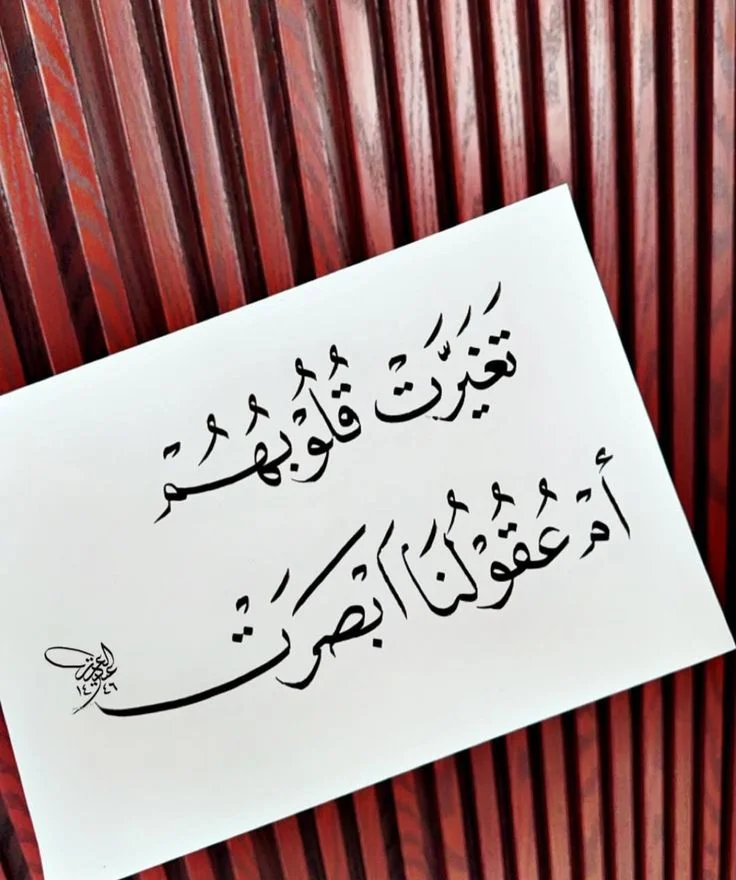 تَغَيَّرَتْ قُلُوْبُهُمْ
أَمْ عُقُوْلُنَا اَبْصَرَتْ
عبدالعزيز
١٤٤٦